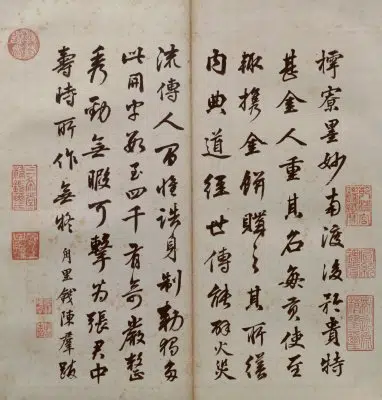 樗寮墨妙南渡後矜貴特
甚金人重其名每貢使至
輒携金餅購之其所繕
内典道經世傳能辟火災
流傳人間惟誥身制勅獨多
此字數至四千有奇嚴整
秀勁無瑕可擊為張君中
壽時所作無疑 甪里錢陳羣跋